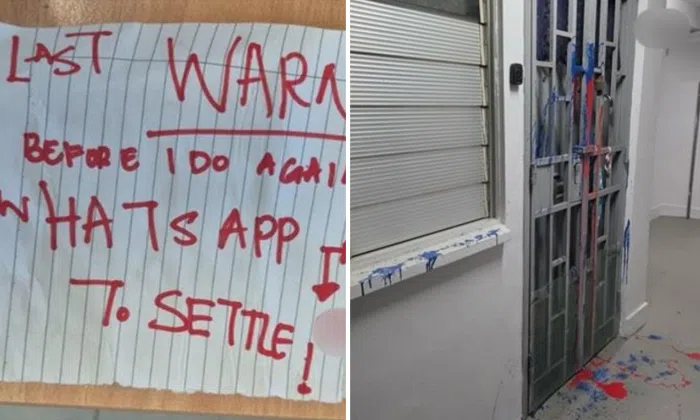 LAST WARN
BEFORE I DO AGAI
WHATSAPP
TO SETTLE!